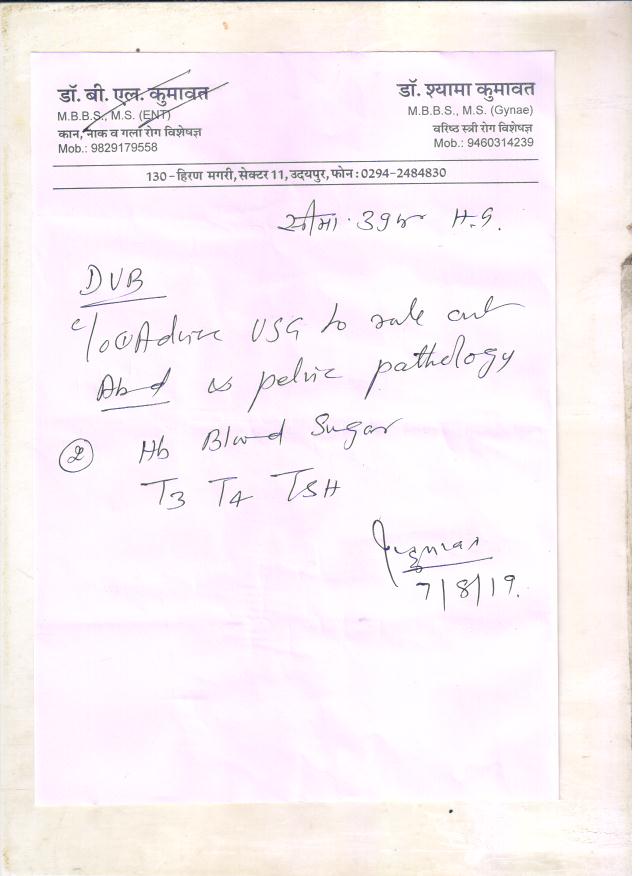 डॉ. बी. एल. कुमावत
M.B.B.S., M.S. (ENT)
कान, नाक व गला रोग विशेषज्ञ
Mob.: 9829179558
डॉ. श्यामा कुमावत
M.B.B.S., M.S. (Gynae)
वरिष्ठ स्त्री रोग विशेषज्ञ
Mob.: 9460314239
130-हिरण मगरी, सेक्टर 11, उदयपुर, फोन : 0294-2484830
सीमा 39 H.G.
DUB
Advice USG to rule out
Abd pelvic pathology
② Hb Blood Sugar
T3 T4 TSH
7/8/19.